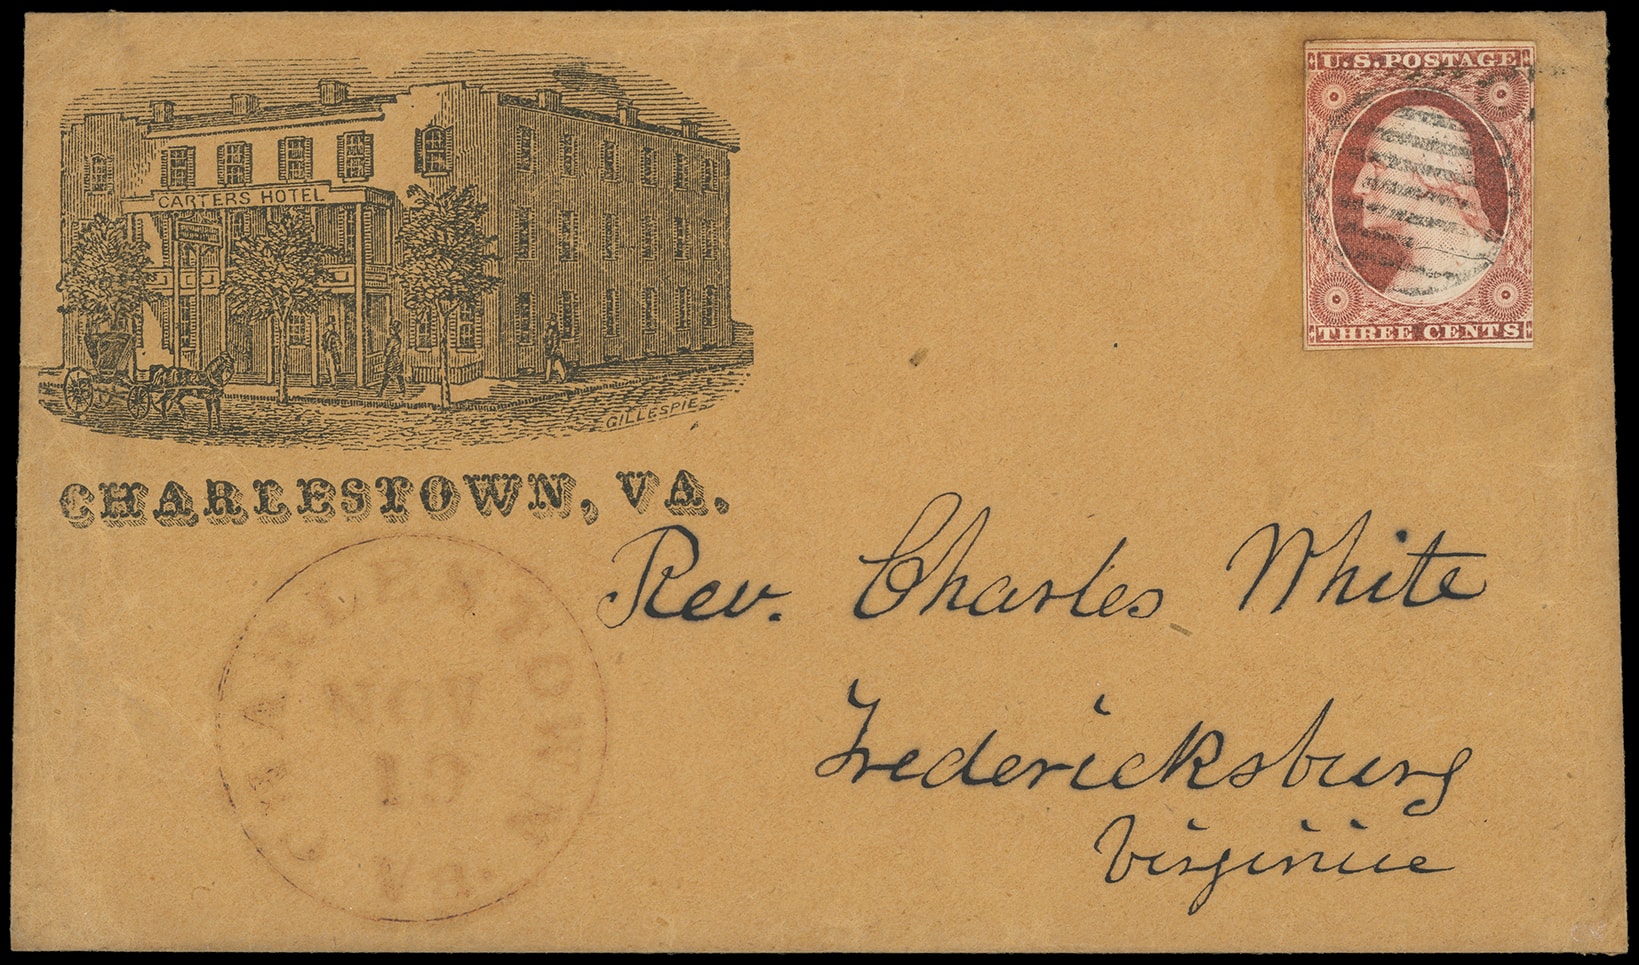 CARTERS HOTEL
GILLESPIE
CHARLESTOWN, VA.
U.S. POSTAGE
THREE CENTS
CHARLESTOWN VA.
NOV
19
Rev. Charles White
Fredericksburg
Virginia